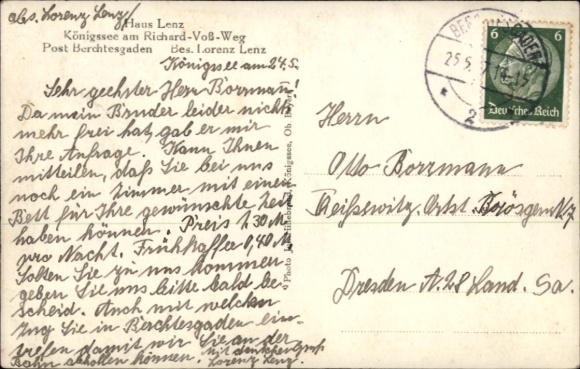 abs. Lorenz Lenz
Haus Lenz
Königssee am Richard-Voß-Weg
Post Berchtesgaden Bes. Lorenz Lenz
Königssee am 24.5.
Sehr geehrter Herr Borrmann!
Da mein Bruder leider nichts
mehr frei hat, gab er mir
Ihre Anfrage. Kann Ihnen
mitteilen, daß Sie bei uns
noch ein Zimmer mit einem
Bett für Ihre gewünschte Zeit
haben können. Preis 1,30 M
pro Nacht. Frühkaffee 0,40 M.
Sollten Sie zu uns kommen
geben Sie uns bitte bald be-
scheid. Auch mit welchem
Zug Sie in Berchtesgaden ein-
treffen damit wir Sie an der
Bahn abholen können. Mit deutschem Gruß
Lorenz Lenz.
Photo Königssee, Ob.
BERCHTESGADEN
25.5.
2
6 6
Deutsches Reich
Herrn
Otto Borrmann
Dresden A. 28 Land. Sa.